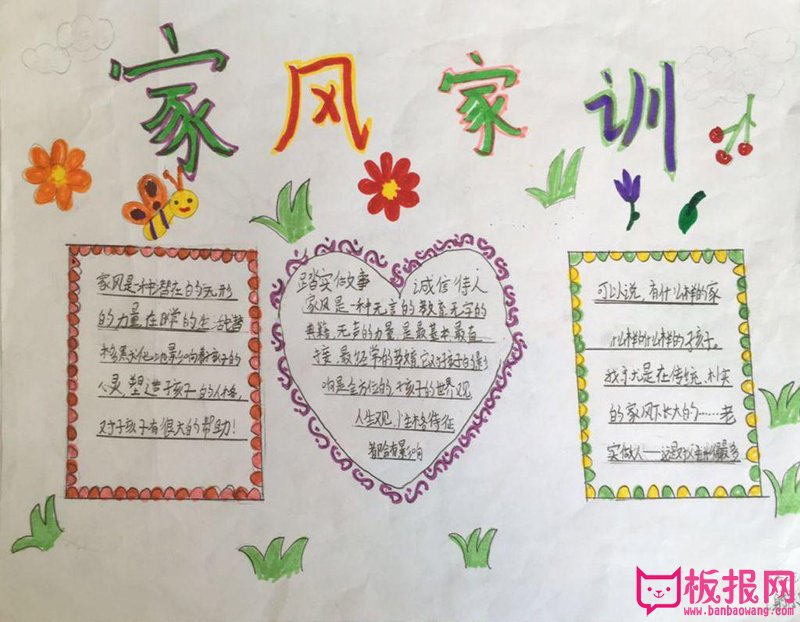 家风家训
家风是一种潜在的无形
的力量在日常的生活
孩子的
心灵,塑造孩子的人格,
对于孩子有很大的帮助!
踏实做事 诚信待人
家风是一种无言的教育无字的
典籍无声的力量是最基本最直
接最经常的教育它对孩子的影
响是全方位的孩子的世界观
人生观,性格特征
都会有影响
可以说,有什么样的家
什么样的孩子。
我于是在传统、朴实
的家风下长大的……老
实做人——
板报网
www.banbaowang.com